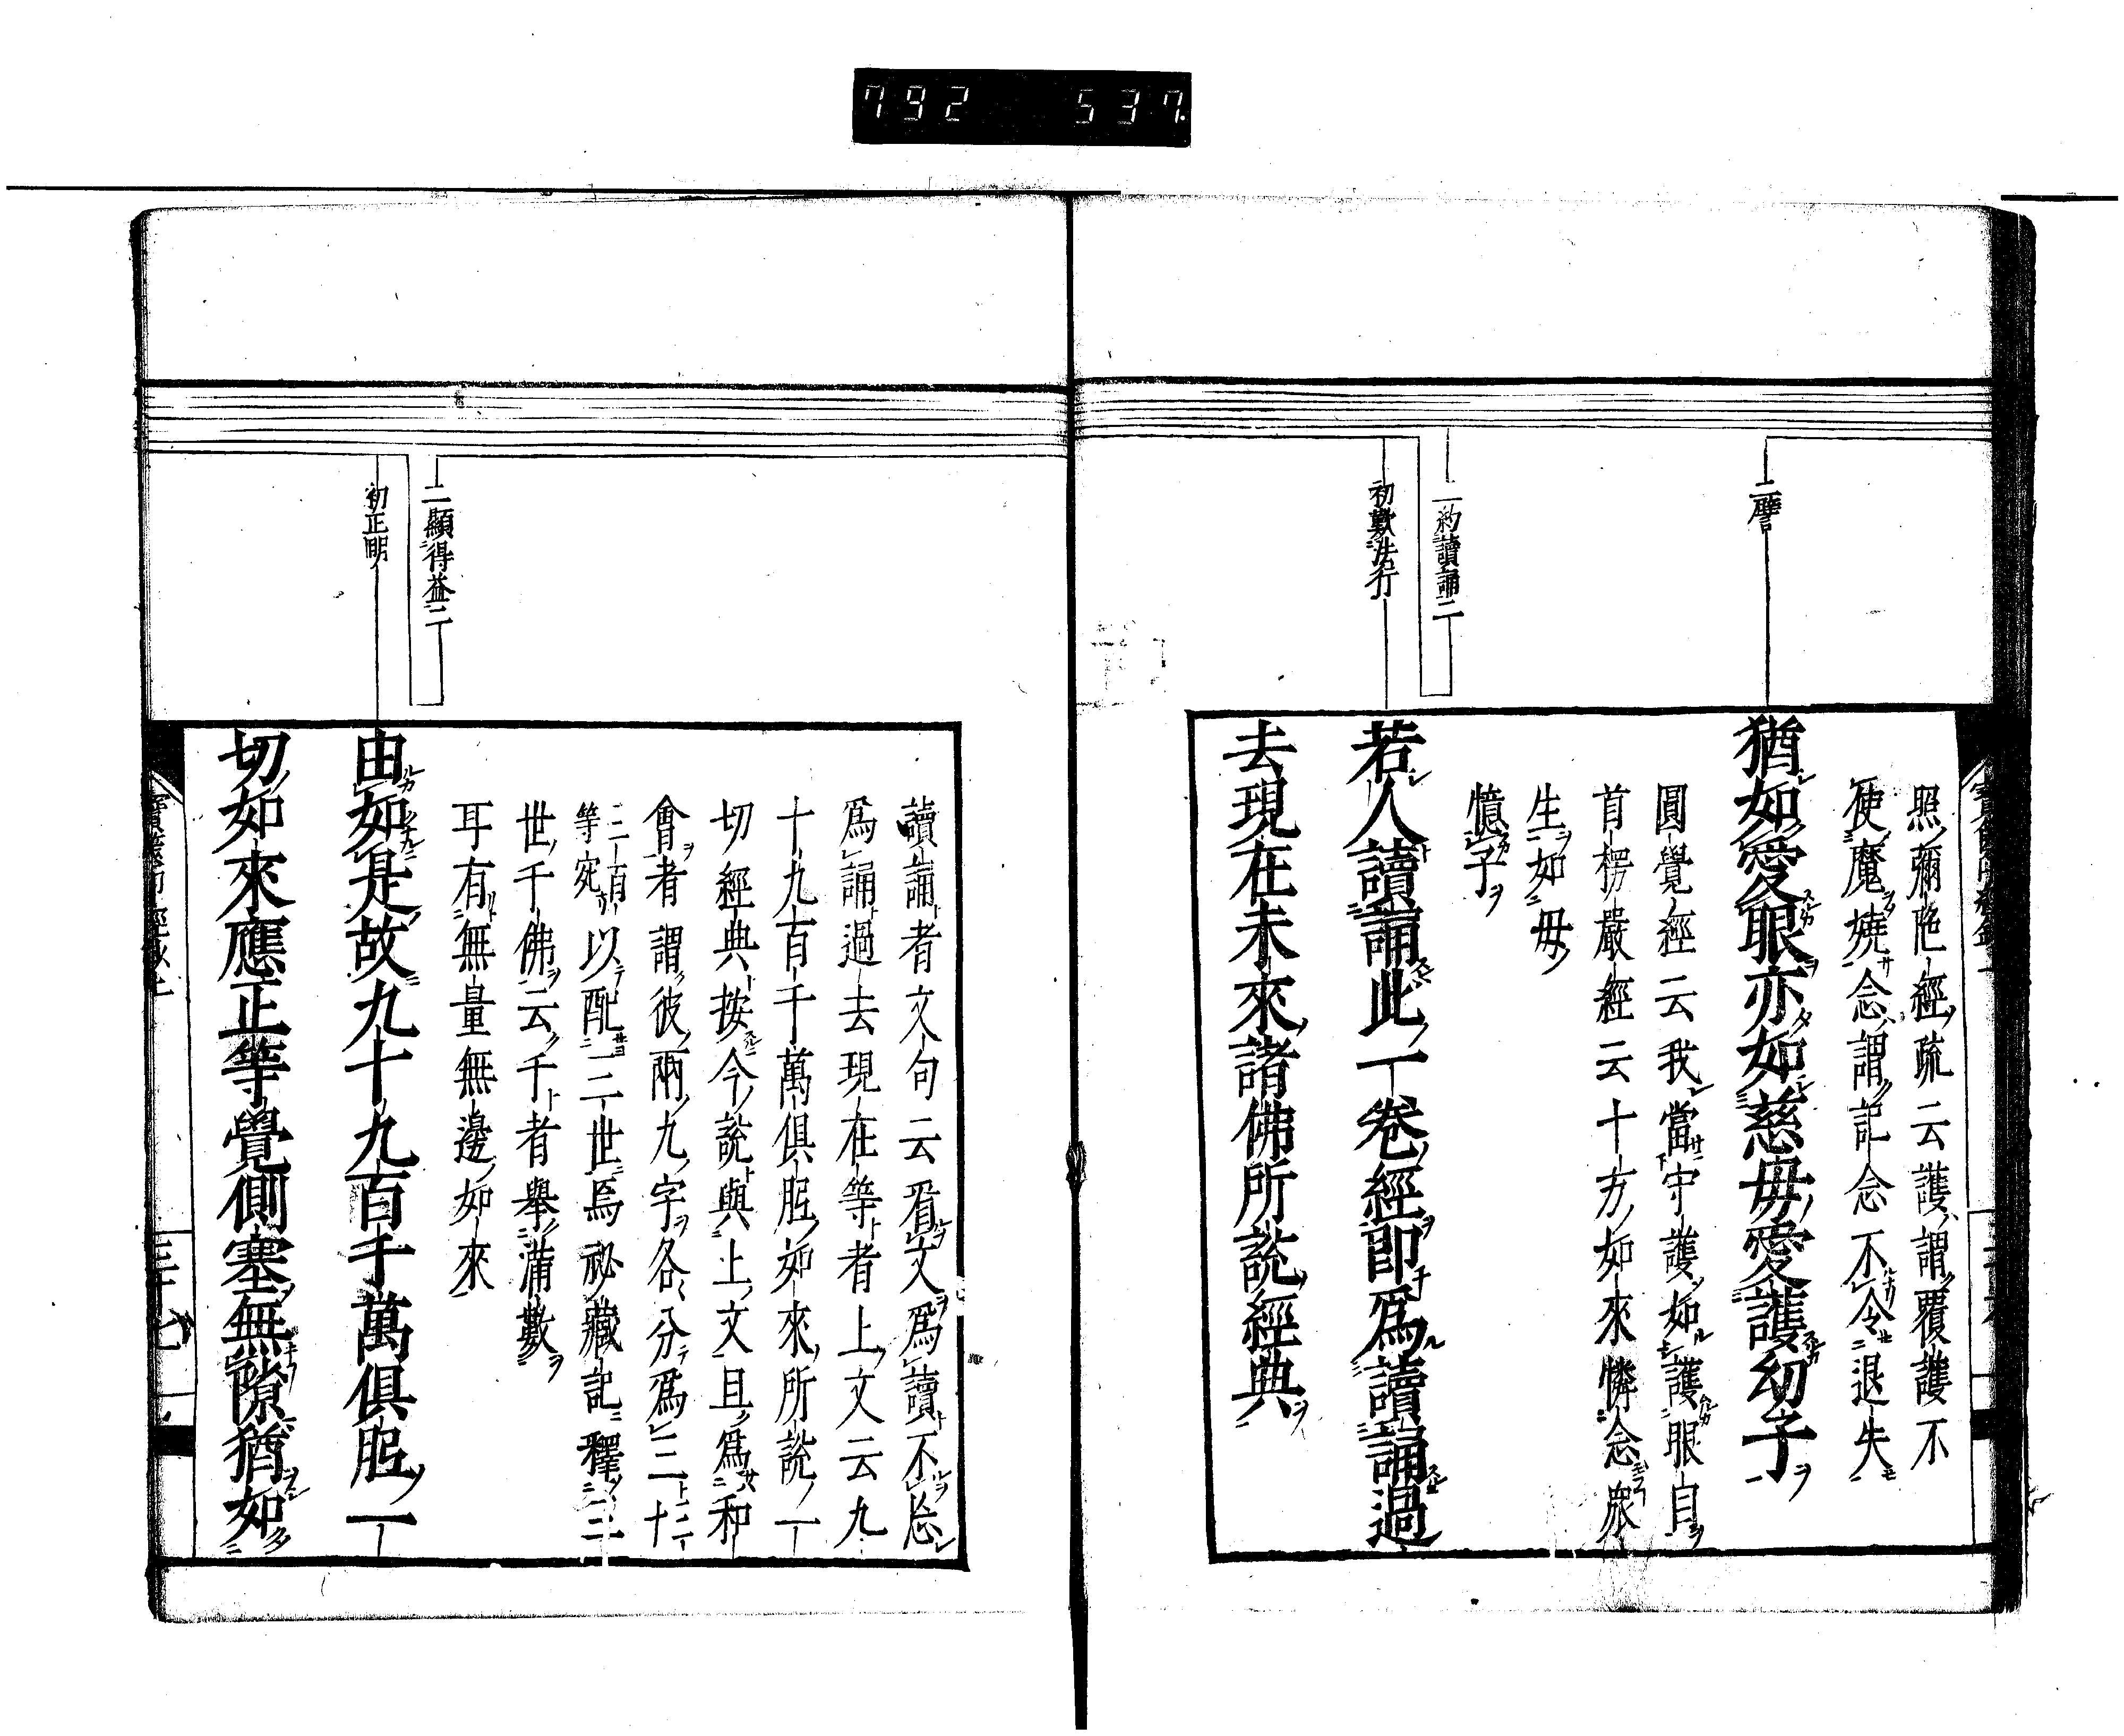 792 537
二譬
二約讀誦二
初歎法行
照彌陀經疏云護謂覆護不
使魔嬈念謂記念不令退失
猶如愛眼亦如慈母愛護幼子
圓覺經云我當守護如護眼目
首楞嚴經云十方如來憐念衆
生如母
憶子
若人讀誦此一卷經即爲讀誦過
去現在未來諸佛所說經典
二顯得益二
初正明
讀誦者文句云看文爲讀不忘
爲誦過去現在等者上文云九
十九百千萬俱胝如來所說一
切經典按今說與上文且爲和
會者謂彼兩九字各分爲三十
三三頭
等宛以配三世焉祕藏記釋三
世千佛云千者舉滿數
耳有無量無邊如來
由如是故九十九百千萬俱胝一
切如來應正等覺側塞無隙猶如
三十七